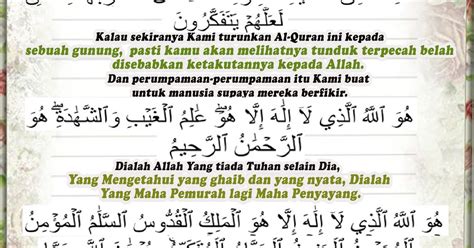 لَعَلَّهُمْ يَتَفَكَّرُونَ
Kalau sekiranya Kami turunkan Al-Quran ini kepada
sebuah gunung, pasti kamu akan melihatnya tunduk terpecah belah
disebabkan ketakutannya kepada Allah.
Dan perumpamaan-perumpamaan itu Kami buat
untuk manusia supaya mereka berfikir.
هُوَ ٱللَّهُ ٱلَّذِي لَا إِلَٰهَ إِلَّا هُوَ ۖ عَٰلِمُ ٱلْغَيْبِ وَٱلشَّهَٰدَةِ ۖ هُوَ
ٱلرَّحْمَٰنُ ٱلرَّحِيمُ
Dialah Allah Yang tiada Tuhan selain Dia,
Yang Mengetahui yang ghaib dan yang nyata, Dialah
Yang Maha Pemurah lagi Maha Penyayang.
هُوَ ٱللَّهُ ٱلَّذِي لَا إِلَٰهَ إِلَّا هُوَ ٱلْمَلِكُ ٱلْقُدُّوسُ ٱلسَّلَٰمُ ٱلْمُؤْمِنُ